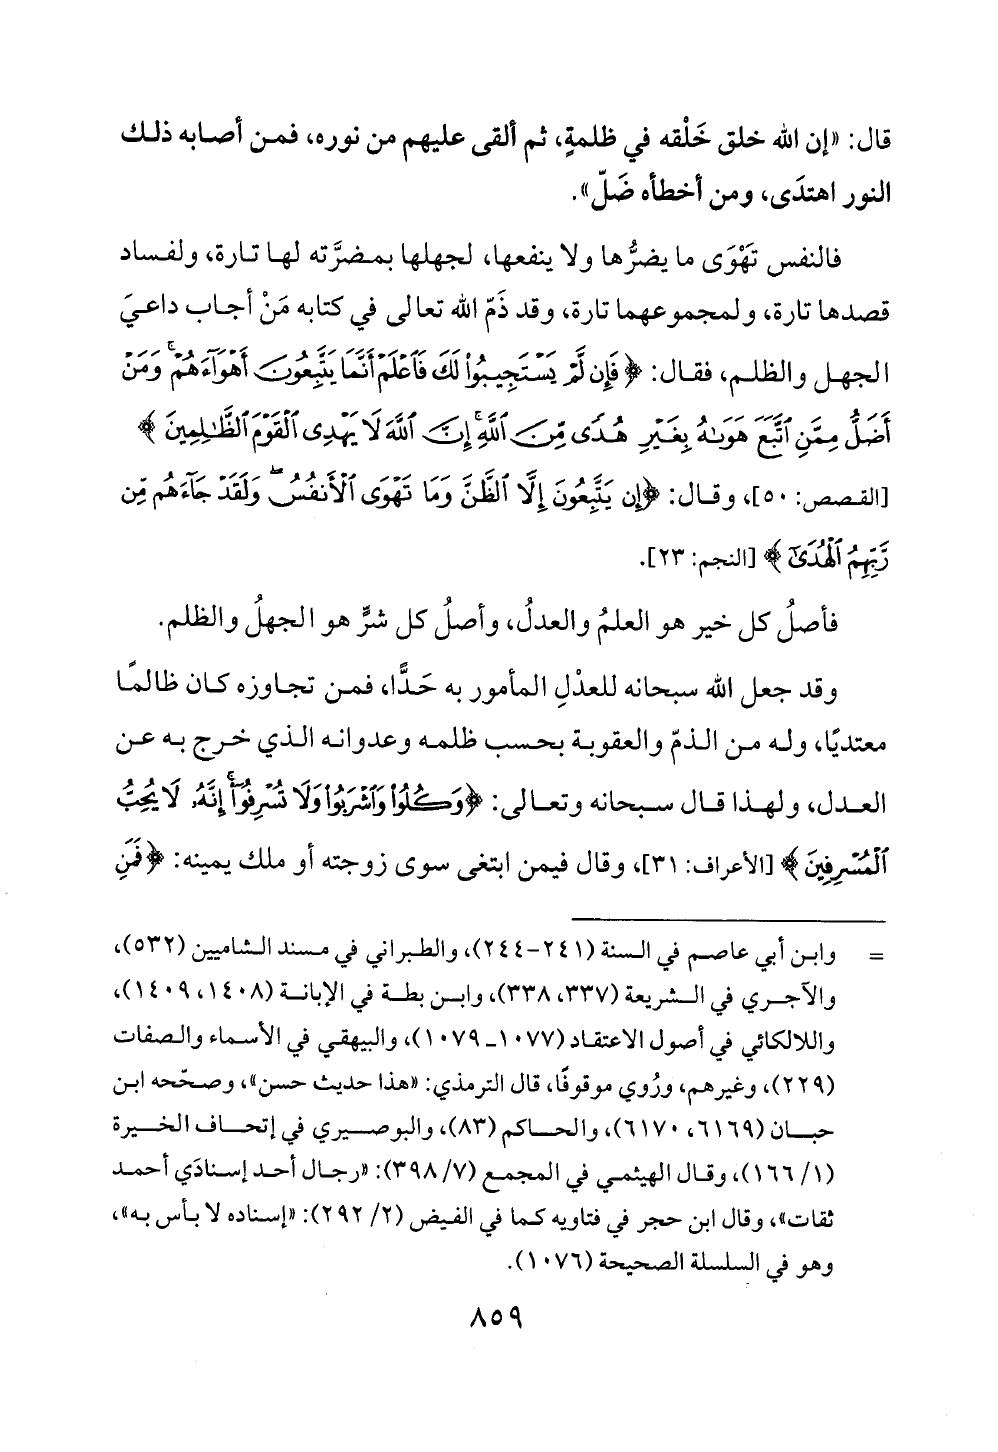 قال: «إن الله خلق خَلْقه في ظلمةٍ، ثم ألقى عليهم من نوره، فمن أصابه ذلك
النور اهتدَى، ومن أخطأه ضَلّ».
فالنفس تَهْوَى ما يضرُّها ولا ينفعها، لجهلها بمضرَّته لها تارة، ولفساد
قصدها تارة، ولمجموعهما تارة، وقد ذَمّ الله تعالى في كتابه مَنْ أجاب داعيَ
الجهل والظلم، فقال: ﴿فَإِن لَّمْ يَسْتَجِيبُوا۟ لَكَ فَٱعْلَمْ أَنَّمَا يَتَّبِعُونَ أَهْوَآءَهُمْ ۚ وَمَنْ
أَضَلُّ مِمَّنِ ٱتَّبَعَ هَوَىٰهُ بِغَيْرِ هُدًى مِّنَ ٱللَّهِ ۚ إِنَّ ٱللَّهَ لَا يَهْدِى ٱلْقَوْمَ ٱلظَّٰلِمِينَ﴾
[القصص: ٥٠]، وقال: ﴿إِن يَتَّبِعُونَ إِلَّا ٱلظَّنَّ وَمَا تَهْوَى ٱلْأَنفُسُ ۖ وَلَقَدْ جَآءَهُم مِّن
رَّبِّهِمُ ٱلْهُدَىٰٓ﴾ [النجم: ٢٣].
فأصلُ كل خير هو العلمُ والعدلُ، وأصلُ كل شرٍّ هو الجهلُ والظلم.
وقد جعل الله سبحانه للعدْلِ المأمور به حَدًّا، فمن تجاوزه كان ظالمًا
معتديًا، وله من الذمّ والعقوبة بحسب ظلمه وعدوانه الذي خرج به عن
العدل، ولهذا قال سبحانه وتعالى: ﴿وَكُلُوا۟ وَٱشْرَبُوا۟ وَلَا تُسْرِفُوٓا۟ ۚ إِنَّهُۥ لَا يُحِبُّ
ٱلْمُسْرِفِينَ﴾ [الأعراف: ٣١]، وقال فيمن ابتغى سوى زوجته أو ملك يمينه: ﴿فَمَنِ
= وابن أبي عاصم في السنة (٢٤١-٢٤٤)، والطبراني في مسند الشاميين (٥٣٢)،
والآجري في الشريعة (٣٣٧، ٣٣٨)، وابن بطة في الإبانة (١٤٠٨، ١٤٠٩)،
واللالكائي في أصول الاعتقاد (١٠٧٧ـ ١٠٧٩)، والبيهقي في الأسماء والصفات
(٢٢٩)، وغيرهم، ورُوي موقوفًا، قال الترمذي: «هذا حديث حسن»، وصحّحه ابن
حبان (٦١٦٩، ٦١٧٠)، والحاكم (٨٣)، والبوصيري في إتحاف الخيرة
(١/ ١٦٦)، وقال الهيثمي في المجمع (٧/ ٣٩٨): «رجال أحد إسنادَي أحمد
ثقات»، وقال ابن حجر في فتاويه كما في الفيض (٢/ ٢٩٢): «إسناده لا بأس به»،
وهو في السلسلة الصحيحة (١٠٧٦).
٨٥٩